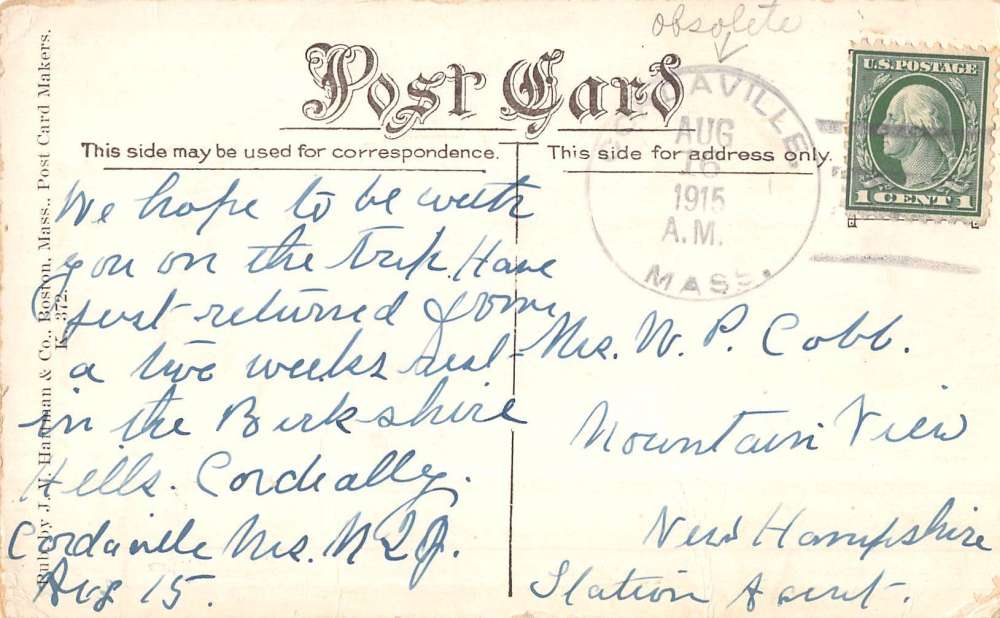 obsolete
Post Card
This side may be used for correspondence.
This side for address only.
DAVILLE
AUG
16
1915
A.M.
MASS.
U.S. POSTAGE
1 CENT 1
Pub. by J. V. Hartman & Co., Boston, Mass., Post Card Makers.
K. 372.
We hope to be with
you on the trip. Have
just returned from
a two weeks rest
in the Berkshire
Hills. Cordeally.
Cordaville Ms.
Aug 15.
Mrs. W. P. Cobb.
Mountain View
New Hampshire
Station Agent.